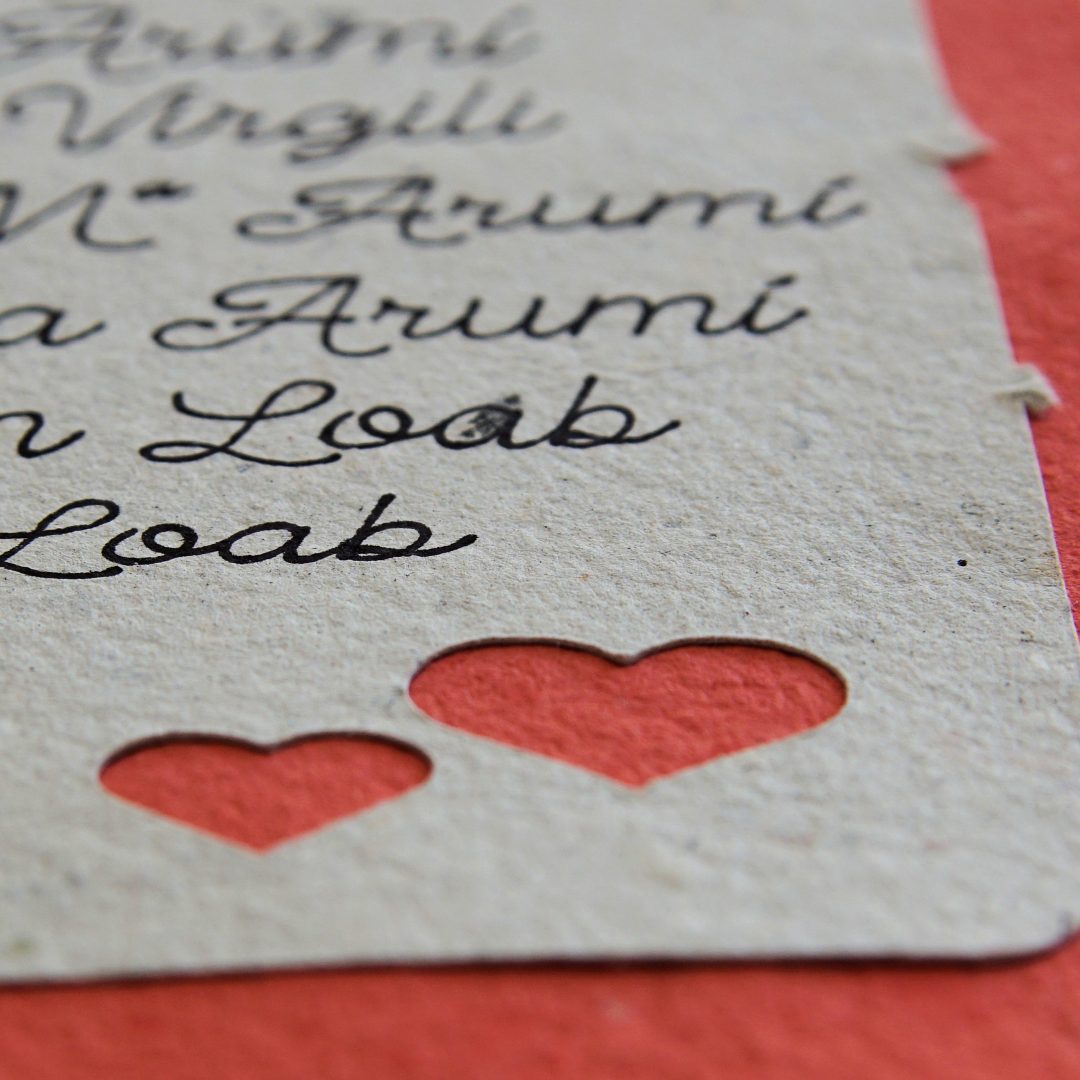 Arumí
Virgili
Mª Arumí
a Arumí
n Loab
Loab